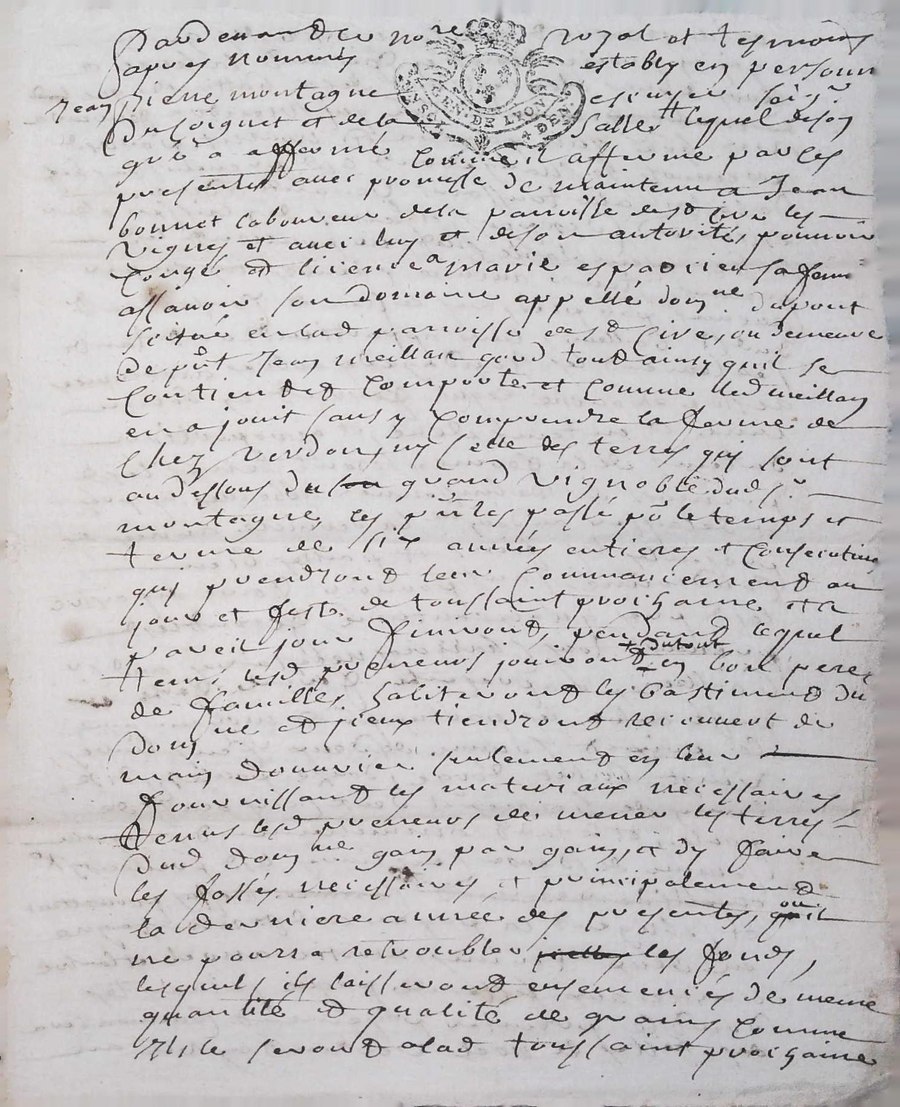 Pardevant le no.re royal et tesmoins
apres nommés estably en personne
Jean pierre montagne escuyer seig.r
GEN. DE LYON
Du soignet et de la Salle lequel de son
gré a affermé comme il afferme par les
presentes avec promesse de maintenir a Jean
bonnet laboureur de la parroisse de s.t Cire les
vignes et avec luy et de son autorité, pouvoir
Congé et licence a marie espa sa fem
assavoir son domaine appellé dom.ne dupont
scitué en lad parroisse de s.t Cire, ou demeure
de p.nt Jean meillan gord tout ainsy quil se
Contient et Comporte et comme led meillan
en a jouit sans y Comprendre la ferme de
Chez verdon, ny celle des terres qui sont
au dessous du grand vignoble dud s.r
montagne, les p.ntes passé p.r le temps et
terme de six années entieres et Consecutives
qui prendront leur Commancement au
jour et feste de toussaint prochaine et a
pareil jour finiront, pendant lequel
tems lesd preneurs jouiront du tout en bon pere
de familles, habiteront les bastiments du
dom.ne et jceux tiendront recouvert de
main douvrier seulement en leur
fournissant les materiaux necessaires
tenus lesd preneurs de mener les terres
dud dom.ne gain par gain, et dy faire
les fossés necessaires, et principalement
la derniere année des presentes, ou il
ne pourra retroubler les fonds,
lesquels ils laisseront ensemencés de meme
quantité et qualité de grains Comme
ils le seront alad toussaint prochaine